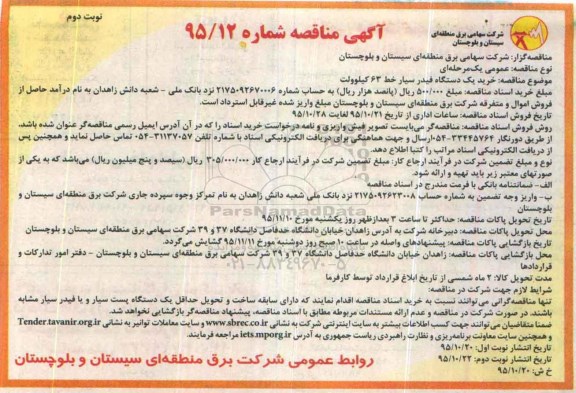 نوبت دوم
شرکت سهامی برق منطقه‌ای
سیستان و بلوچستان
آگهی مناقصه شماره ۹۵/۱۲
مناقصه‌گزار: شرکت سهامی برق منطقه‌ای سیستان و بلوچستان
نوع مناقصه: عمومی یک‌مرحله‌ای
موضوع مناقصه: خرید یک دستگاه فیدر سیار خط ۶۳ کیلوولت
مبلغ خرید اسناد مناقصه: مبلغ ۵۰۰/۰۰۰ ریال (پانصد هزار ریال) به حساب شماره ۲۱۷۵۰۹۲۶۷۰۰۰۶ نزد بانک ملی - شعبه دانش زاهدان به نام درآمد حاصل از
فروش اموال و متفرقه شرکت برق منطقه‌ای سیستان و بلوچستان مبلغ واریز شده غیرقابل استرداد است.
تاریخ فروش اسناد مناقصه: ساعات اداری از تاریخ ۹۵/۱۰/۲۱ لغایت ۹۵/۱۰/۲۸
روش فروش اسناد مناقصه: مناقصه‌گر می‌بایست تصویر فیش واریزی و نامه درخواست خرید اسناد را که در آن آدرس ایمیل رسمی مناقصه‌گر عنوان شده باشد.
از طریق دورنگار ۳۳۴۴۵۷۶۴-۰۵۴ ارسال و جهت هماهنگی برای دریافت الکترونیکی اسناد با شماره تلفن ۳۱۱۳۷۰۵۷-۰۵۴ تماس حاصل نماید و همچنین پس
از دریافت الکترونیکی اسناد مراتب را کتبا اطلاع دهد.
نوع و مبلغ تضمین شرکت در فرآیند ارجاع کار: مبلغ تضمین شرکت در فرآیند ارجاع کار ۳۰۵/۰۰۰/۰۰۰ ریال (سیصد و پنج میلیون ریال) می‌باشد که به یکی از
صورتهای معتبر زیر باید تهیه و ارائه شود.
الف- ضمانتنامه بانکی با فرمت مندرج در اسناد مناقصه
ب- واریز وجه تضمین به شماره حساب ۲۱۷۵۰۹۲۶۲۳۰۰۸ نزد بانک ملی شعبه دانش زاهدان به نام تمرکز وجوه سپرده جاری شرکت برق منطقه‌ای سیستان و
بلوچستان
تاریخ تحویل پاکات مناقصه: حداکثر تا ساعت ۳ بعدازظهر روز یکشنبه مورخ ۹۵/۱۱/۱۰
محل تحویل پاکات مناقصه: دبیرخانه شرکت به آدرس زاهدان خیابان دانشگاه حدفاصل دانشگاه ۳۷ و ۳۹ شرکت سهامی برق منطقه‌ای سیستان و بلوچستان
تاریخ بازگشایی پاکات مناقصه: پیشنهادهای واصله در ساعت ۱۰ صبح روز دوشنبه مورخ ۹۵/۱۱/۱۱ گشایش می‌گردد.
محل بازگشایی پاکات مناقصه: زاهدان خیابان دانشگاه حدفاصل دانشگاه ۳۷ و ۳۹ شرکت سهامی برق منطقه‌ای سیستان و بلوچستان - دفتر امور تدارکات و
قراردادها
مدت تحویل کالا: ۲ ماه شمسی از تاریخ ابلاغ قرارداد توسط کارفرما
شرایط لازم جهت شرکت در مناقصه:
تنها مناقصه‌گرانی می‌توانند نسبت به خرید اسناد مناقصه اقدام نمایند که دارای سابقه ساخت و تحویل حداقل یک دستگاه پست سیار و یا فیدر سیار مشابه
باشند. در صورت شرکت در مناقصه و عدم ارائه مستندات مربوطه مطابق با اسناد مناقصه، پیشنهاد مناقصه‌گر بازگشایی نخواهد شد.
ضمنا متقاضیان می‌توانند جهت کسب اطلاعات بیشتر به سایت اینترنتی شرکت به نشانی www.sbrec.co.ir و سایت معاملات توانیر به نشانی Tender.tavanir.org.ir
و همچنین سایت معاونت برنامه‌ریزی و نظارت راهبردی ریاست جمهوری به آدرس iets.mporg.ir مراجعه فرمایند.
تاریخ انتشار نوبت اول: ۹۵/۱۰/۲۰
تاریخ انتشار نوبت دوم: ۹۵/۱۰/۲۲
خ ش: ۹۵/۱۰/۲۰
روابط عمومی شرکت برق منطقه‌ای سیستان و بلوچستان
ParsNamadData
۰۲۱-۸۸۳۴۹۶۷۰-۵